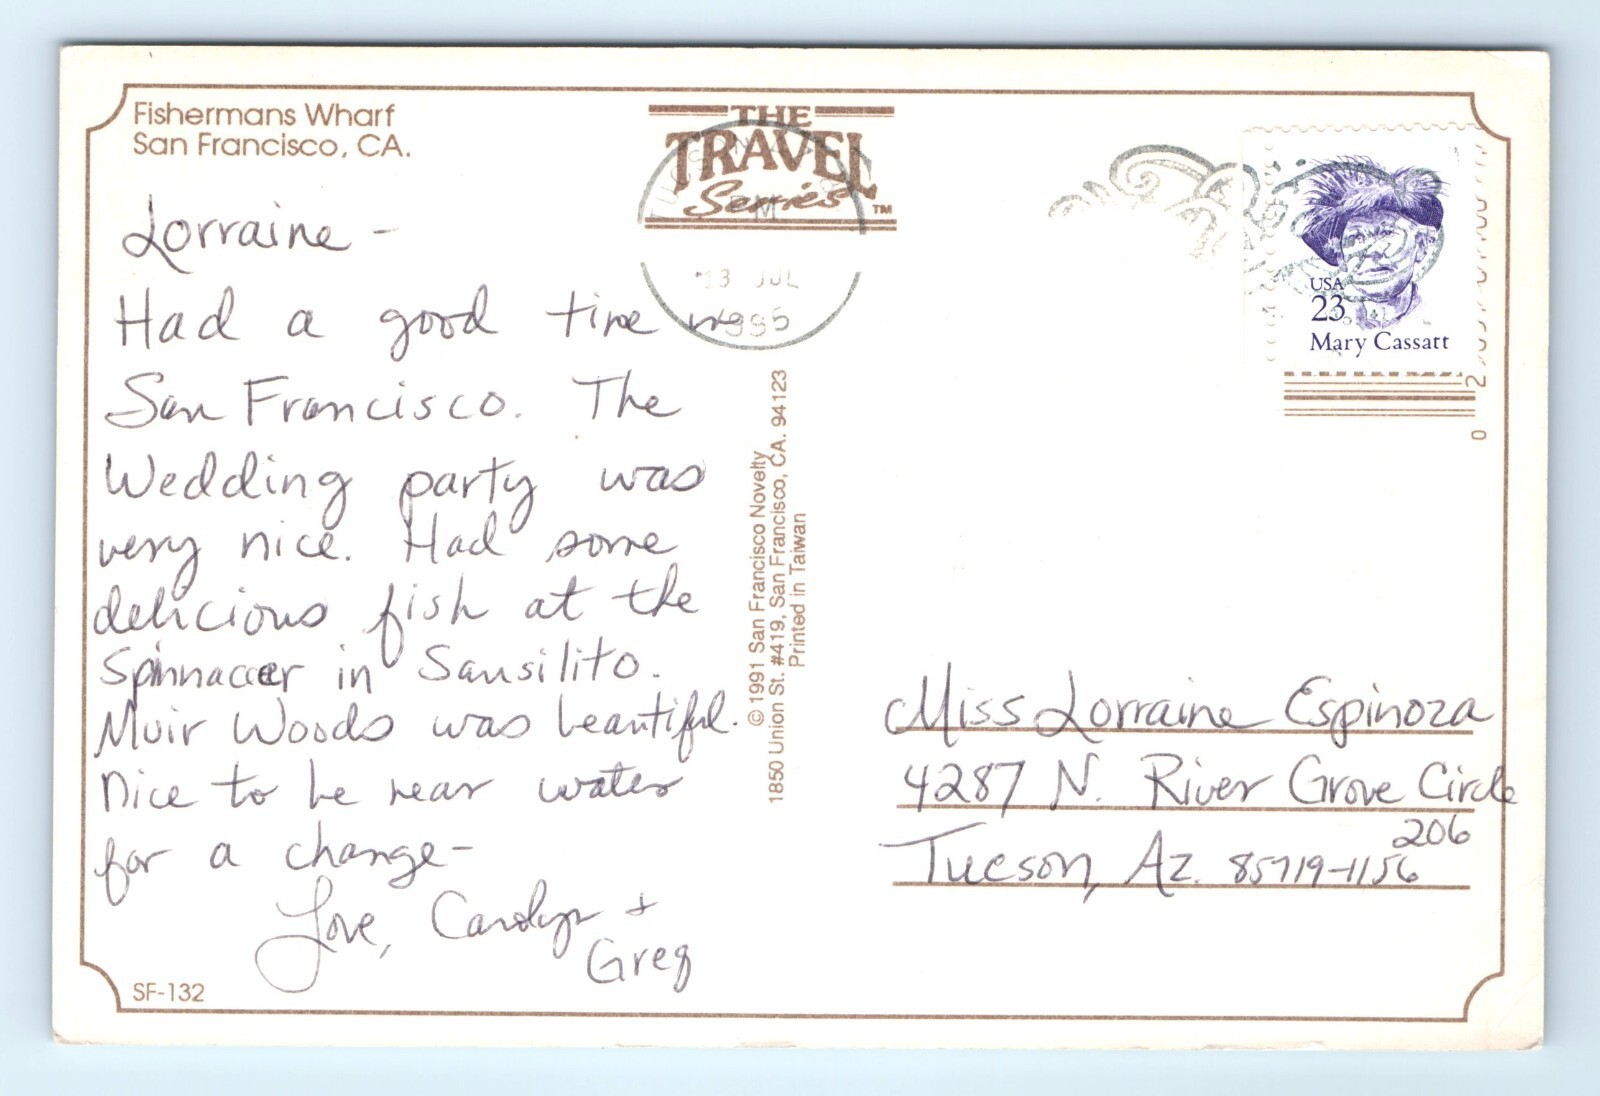 Fishermans Wharf
San Francisco, CA.
THE
TRAVEL
Series™
13 JUL
1995
USA
23
Mary Cassatt
Lorraine -
Had a good time in
San Francisco. The
Wedding party was
very nice. Had some
delicious fish at the
Spinnaccer in Sausilito.
Muir Woods was beautiful.
Nice to be near water
for a change-
Love, Carolyn +
Greg
SF-132
© 1991 San Francisco Novelty
1850 Union St. #419, San Francisco, CA. 94123
Printed in Taiwan
Miss Lorraine Espinoza
4287 N. River Grove Circle
206
Tucson, Az. 85719-1156